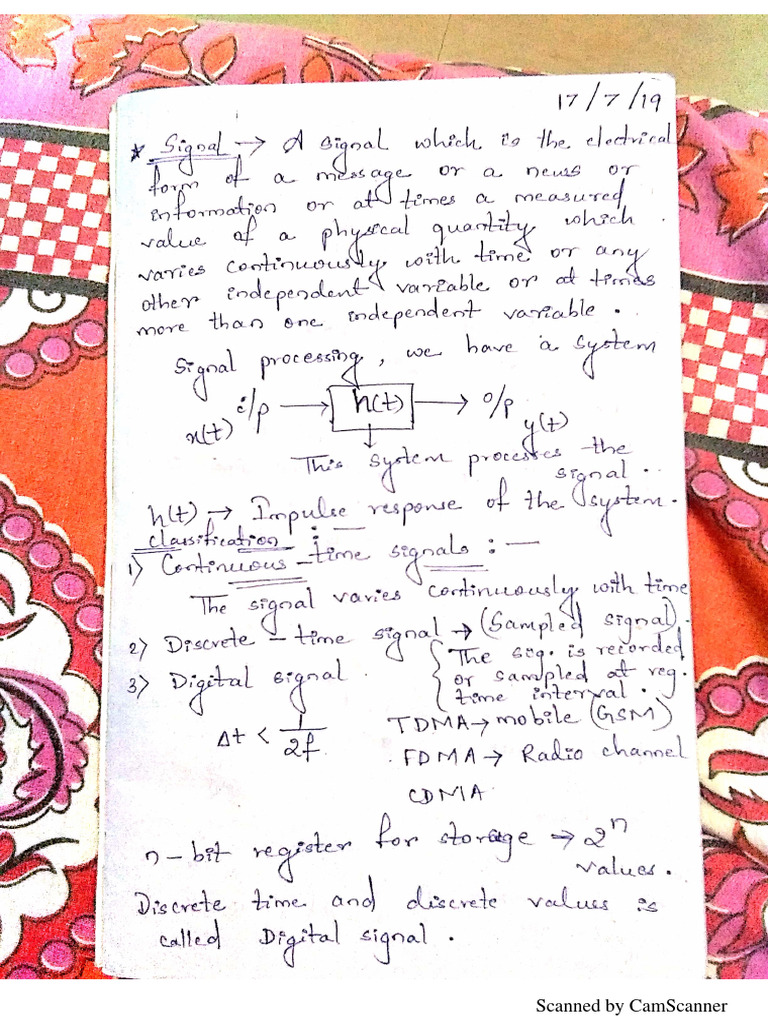 17/7/19
* Signal → A signal which is the electrical
form of a message or a news or
information or at times a measured
value of a physical quantity which
varies continuously with time or any
other independent variable or at times
more than one independent variable.
Signal processing, we have a system
x(t) i/p → h(t) → o/p y(t)
This system processes the
signal.
h(t) → Impulse response of the system.
classification :
1) Continuous-time signals :—
The signal varies continuously with time
2) Discrete-time signal → (Sampled signal).
3) Digital signal.
{ The sig. is recorded
or sampled at reg.
time interval.
Δt < 1/2f
TDMA → mobile (GSM)
FDMA → Radio channel
CDMA
n-bit register for storage → 2ⁿ
values.
Discrete time and discrete values is
called Digital signal.
Scanned by CamScanner